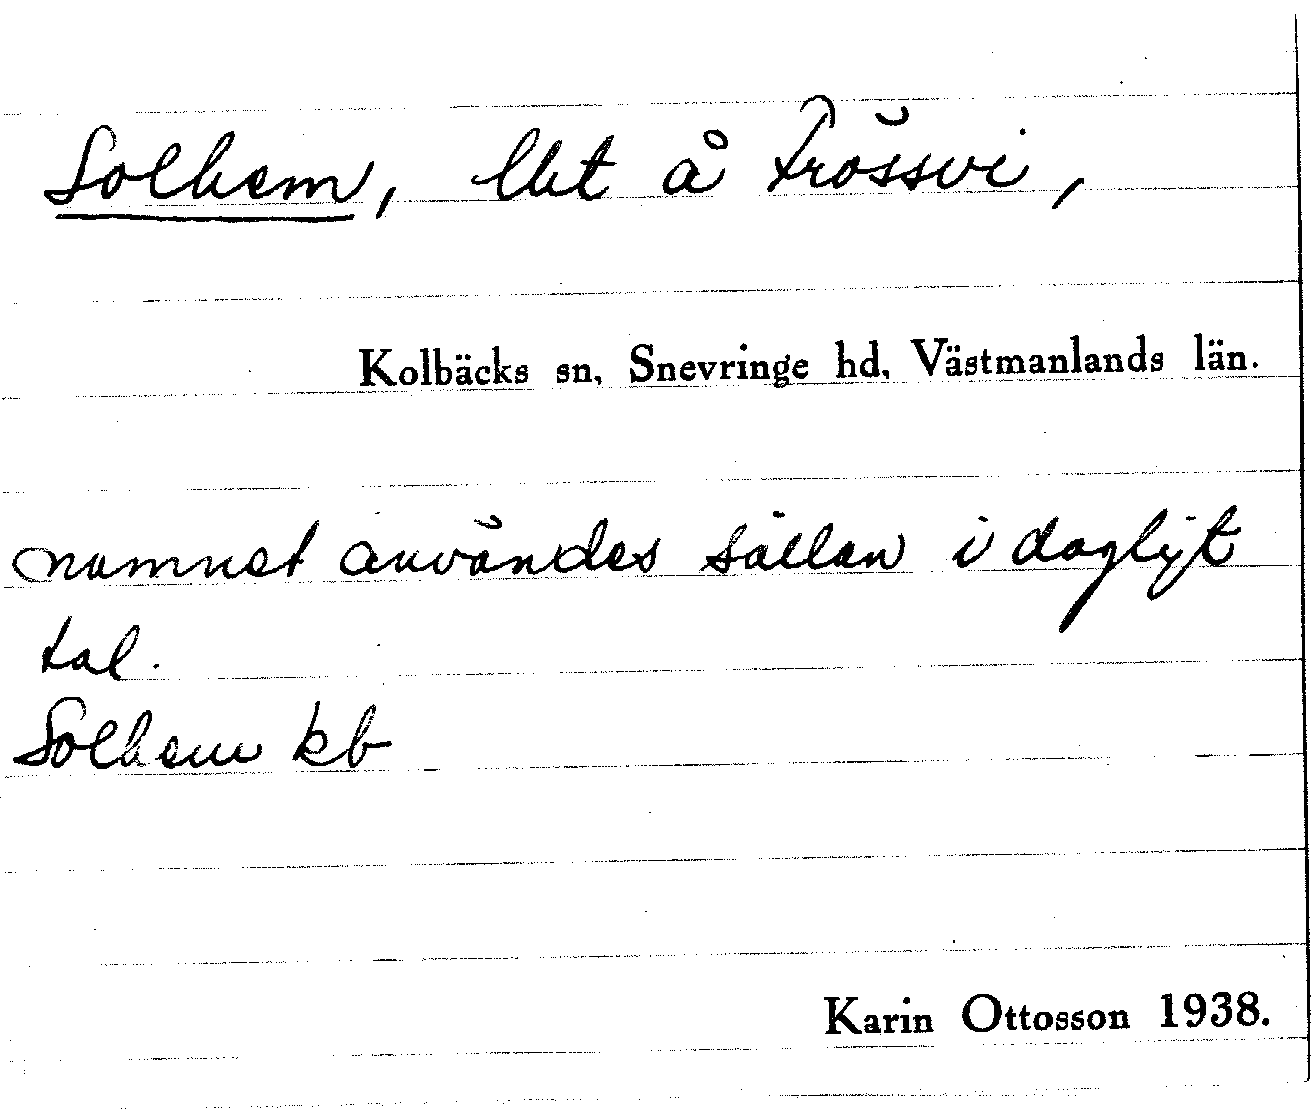 Solhem, lht å Frössvi,
Kolbäcks sn, Snevringe hd, Västmanlands län.
namnet användes sällan i dagligt
tal.
Solhem kb
Karin Ottosson 1938.